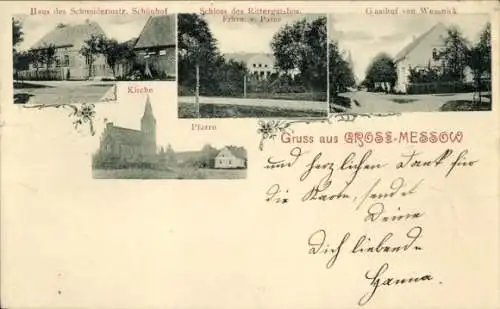 Haus des Schneidermstr. Schönhof
Schloss des Rittergutsbes.
Frhrn. v. Patow
Gasthof von Wussnick
Kirche
Pfarre
Gruss aus GROSS-MESSOW
und herzlichen Dank für
die Karte, sendet
Deine
Dich liebende
Hanna.